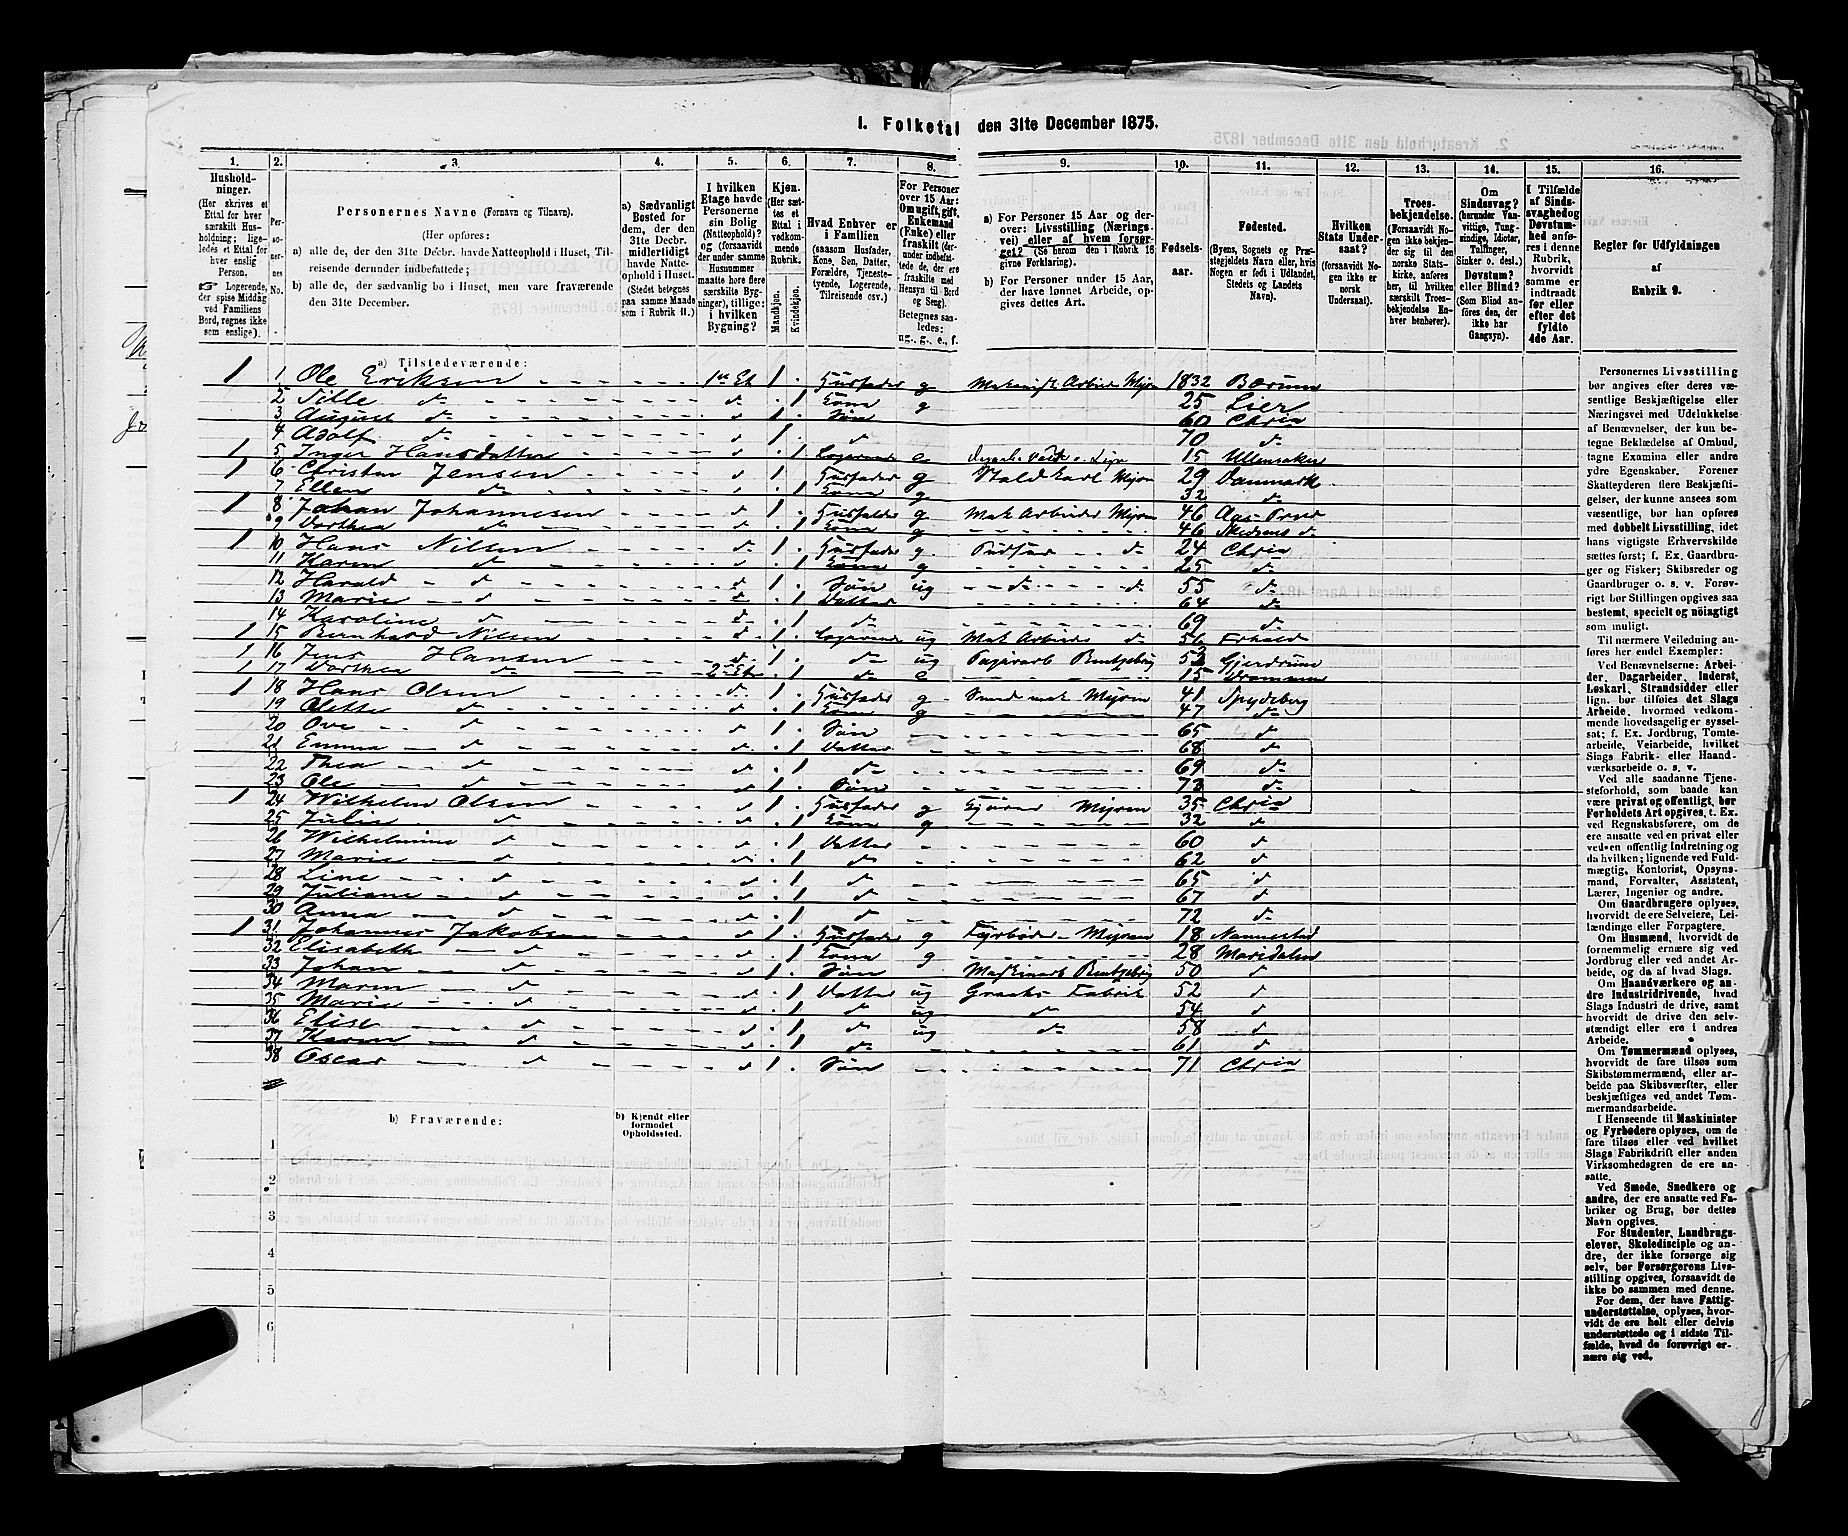 I. Folketal den 31te December 1875.
1. 2. 3. 4. 5. 6. 7. 8. 9. 10. 11. 12. 13. 14. 15. 16.
Husholdninger.
(Her skrives et Ettal for hver særskilt Husholdning; ligeledes et Ettal for hver enslig Person.
☞ Logerende, der spise Middag ved Familiens Bord, regnes ikke som enslige).
Personernes No.
Personernes Navne (Fornavn og Tilnavn).
(Her opføres:
a) alle de, der den 31te Decbr. havde Natteophold i Huset, Tilreisende derunder indbefattede;
b) alle de, der sædvanlig bo i Huset, men vare fraværende den 31te December.
a) Sædvanligt Bosted for dem, der den 31te Decbr. midlertidigt havde Natteophold i Huset. (Stedet betegnes paa samme Maade som i Rubrik 11.)
I hvilken Etage havde Personerne sin Bolig (Natteophold)? og (forsaavidt der under samme Husnummer maatte høre flere særskilte Bygninger), tillige: i hvilken Bygning?
Kjøn. (Her sættes et Ettal i vedkommende Rubrik.
Mandkjøn. Kvindekjøn.
Hvad Enhver er i Familien (saasom Husfader, Kone, Søn, Datter, Forældre, Tjenestetyende, Logerende, Tilreisende osv.)
For Personer over 15 Aar: Om ugift, gift, Enkemand (Enke) eller fraskilt (derunder indbefattede de, der ere fraskilte med Hensyn til Bord og Seng). Betegnes saaledes: ug., g., e., f.
a) For Personer 15 Aar og derover: Livsstilling (Næringsvei) eller af hvem forsørget? (Se herom den i Rubrik 16 givne Forklaring).
b) For Personer under 15 Aar, der have lønnet Arbeide, opgives dettes Art.
Fødselsaar.
Fødested. (Byens, Sognets og Præstegjeldets Navn eller, hvis Nogen er født i Udlandet, Stedets og Landets Navn).
Hvilken Stats Undersaat? (forsaavidt Nogen ikke er norsk Undersaat).
Troesbekjendelse. (Forsaavidt Nogen ikke bekjender sig til den norske Statskirke, anføres her, til hvilken særskilt Troesbekjendelse Enhver benhører).
Om Sindssvag? (herunder Vanvittige, Tungsindige, Idioter, Tullinger, Sinker o. desl.) Døvstum? eller Blind? (Som Blind anføres den, der ikke har Gangsyn).
I Tilfælde af Sindssvaghed og Døvstumhed anføres i denne Rubrik, hvorvidt samme er indtraadt før eller efter det fyldte 4de Aar.
Regler for Udfyldningen af Rubrik 9.
a) Tilstedeværende:
1 1 Ole Eriksen 1ste Et 1 Husfader g 1832 Bærum
2 Sille d 1 Kone g 25 Lier
3 August d 1 Søn 60 Chria
4 Adolf d 1 d 70 d
1 5 Inger Hansdatter 1 Logerende e 15 Ullensaker
1 6 Christen Jensen 1 Husfader g Staldkarl Myren 29 Danmark
7 Ellen d 1 Kone g 32 d
1 8 Johan Johannesen 1 Husfader g Mak Arbeider Myren 46
9 Dorthea d 1 Kone g 46
1 10 Hans Nilsen 1 Husfader g d 24 Chria
11 Karen d 1 Kone g 25 d
12 Harald d 1 Søn ug d d 55 d
13 Marie d 1 Datter 64 d
14 Karoline d 1 d 69 d
1 15 Bernhard Nilsen d 1 Logerende ug Mak Arbeider d 56
1 16 Jens Hansen d 1 d ug 53 Gjerdrum
1 17 Dorthea d 2den Et 1 d e 15 Drammen
1 18 Hans Olsen d 1 Husfader g Myren 41 Spydeberg
19 Olette d 1 Kone g 47 d
20 Ove d 1 Søn 65 d
21 Emma d 1 Datter 68 d
22 Thea d 1 d 69 d
23 Ole d 1 Søn 73 d
1 24 Wilhelm Olsen 1 Husfader g Myren 35 Chria
25 Julie d 1 Kone g 32 d
26 Wilhelmine d 1 Datter 60 d
27 Marie d 1 d 62 d
28 Line d 1 d 65 d
29 Juliane d 1 d 67 d
30 Anna d 1 d 72 d
1 31 Johannes Jakobsen d 1 Husfader g Fyrbøder Myren 18 Nannestad
32 Elisabeth d 1 Kone g 28 Maridalen
33 Johan d 1 Søn 50 d
34 Maren d 1 Datter ug Graahs Fabrik 52 d
35 Marie d 1 d ug d 54 d
36 Elise d 1 d ug d 58 d
37 Karen d 1 d 61 d
38 Oscar d 1 Søn 71 Chria
b) Fraværende:
b) Kjendt eller formodet Opholdssted.
1
2
3
4
5
6
Personernes Livsstilling bør angives efter deres væsentlige Beskjæftigelse eller Næringsvei med Udelukkelse af Benævnelser, der kun betegne Beklædelse af Ombud, tagne Examina eller andre ydre Egenskaber. Forener Skatteyderen flere Beskjæftigelser, der kunne ansees som væsentlige, bør han opføres med dobbelt Livsstilling, idet hans vigtigste Erhvervskilde sættes først; f. Ex. Gaardbruger og Fisker; Skibsreder og Gaardbruger o. s. v. Forøvrigt bør Stillingen opgives saa bestemt, specielt og nøiagtigt som muligt.
Til nærmere Veiledning anføres her endel Exempler:
Ved Benævnelserne: Arbeider, Dagarbeider, Inderst, Løskarl, Strandsidder eller lign. bør tilføies det Slags Arbeide, hvormed vedkommende hovedsagelig er sysselsat; f. Ex. Jordbrug, Tomtearbeide, Veiarbeide, hvilket Slags Fabrik- eller Haandværksarbeide o. s. v.
Ved alle saadanne Tjenesteforhold, som baade kan være privat og offentligt, bør Forholdets Art opgives, t. Ex. ved Regnskabsførere, om de ere ansatte ved en privat eller ved en offentlig Indretning og da hvilken; lignende ved Fuldmægtig, Kontorist, Opsynsmand, Forvalter, Assistent, Lærer, Ingeniør og andre.
Om Gaardbrugere oplyses, hvorvidt de ere Selveiere, Leilændinge eller Forpagtere.
Om Husmænd, hvorvidt de fornemmelig ernære sig ved Jordbrug eller ved andet Arbeide, og da af hvad Slags.
Om Haandværkere og andre Industridrivende, hvad Slags Industri de drive, samt hvorvidt de drive den selvstændigt eller ere i andres Arbeide.
Om Tømmermænd oplyses, hvorvidt de fare tilsøs som Skibstømmermænd, eller arbeide paa Skibsværfter, eller beskjæftiges ved andet Tømmermandsarbeide.
I Henseende til Maskinister og Fyrbødere oplyses, om de fare tilsøs eller ved hvilket Slags Fabrikdrift eller anden Virksomhedsgren de ere ansatte.
Ved Smede, Snedkere og andre, der ere ansatte ved Fabriker og Brug, bør dettes Navn opgives.
For Studenter, Landbrugselever, Skoledisciple og andre, der ikke forsørge sig selv, bør Forsørgerens Livsstilling opgives, forsaavidt de ikke bo sammen med denne.
For dem, der have Fattigunderstøttelse, oplyses, hvorvidt de ere helt eller delvis understøttede og i sidste Tilfælde, hvad de forøvrigt ernære sig ved.